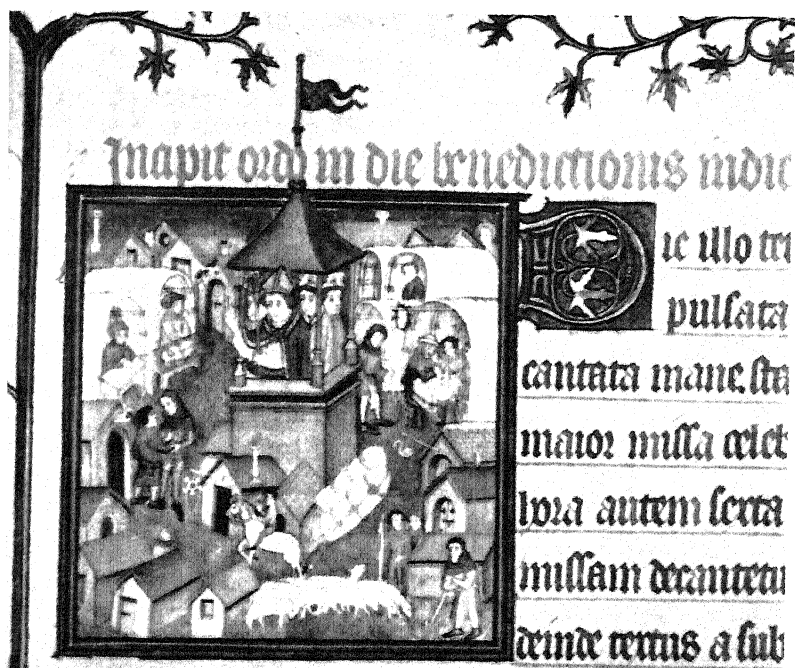 Incipit ordo in die benedictionis indic
Die illo te
pulsata
cantata mane. sta
maior missa celeb
hora autem sexta
missam decantetu
deinde textus a sub